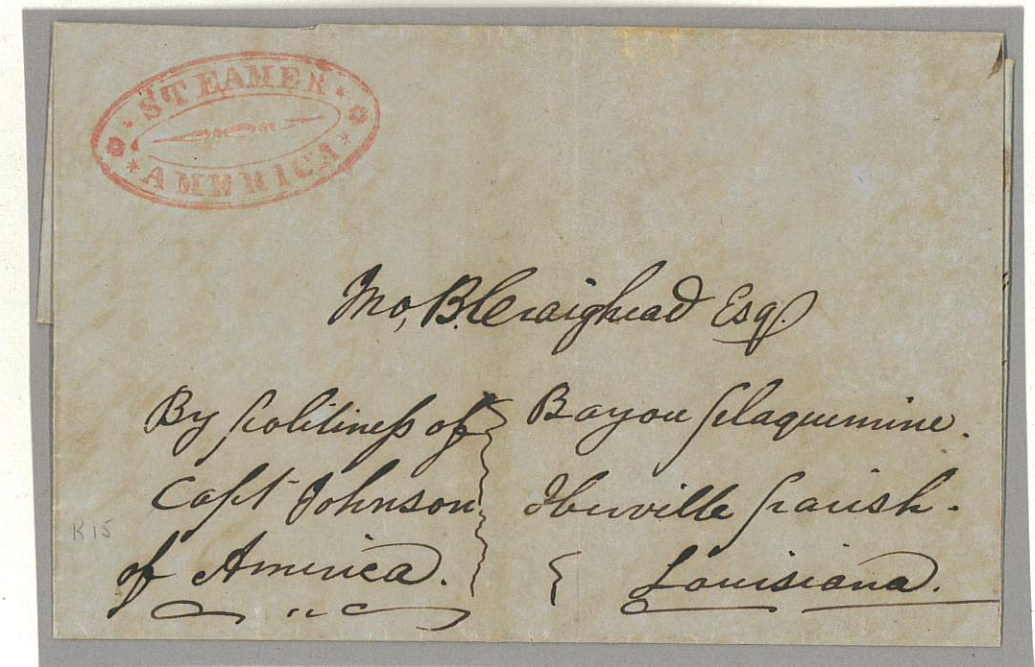 STEAMER
AMERICA
Jno, B. Craighead Esq.
By politeness of
Capt Johnson
of America.
Bayou Plaquemine.
Iberville Parish.
Louisiana.
K15